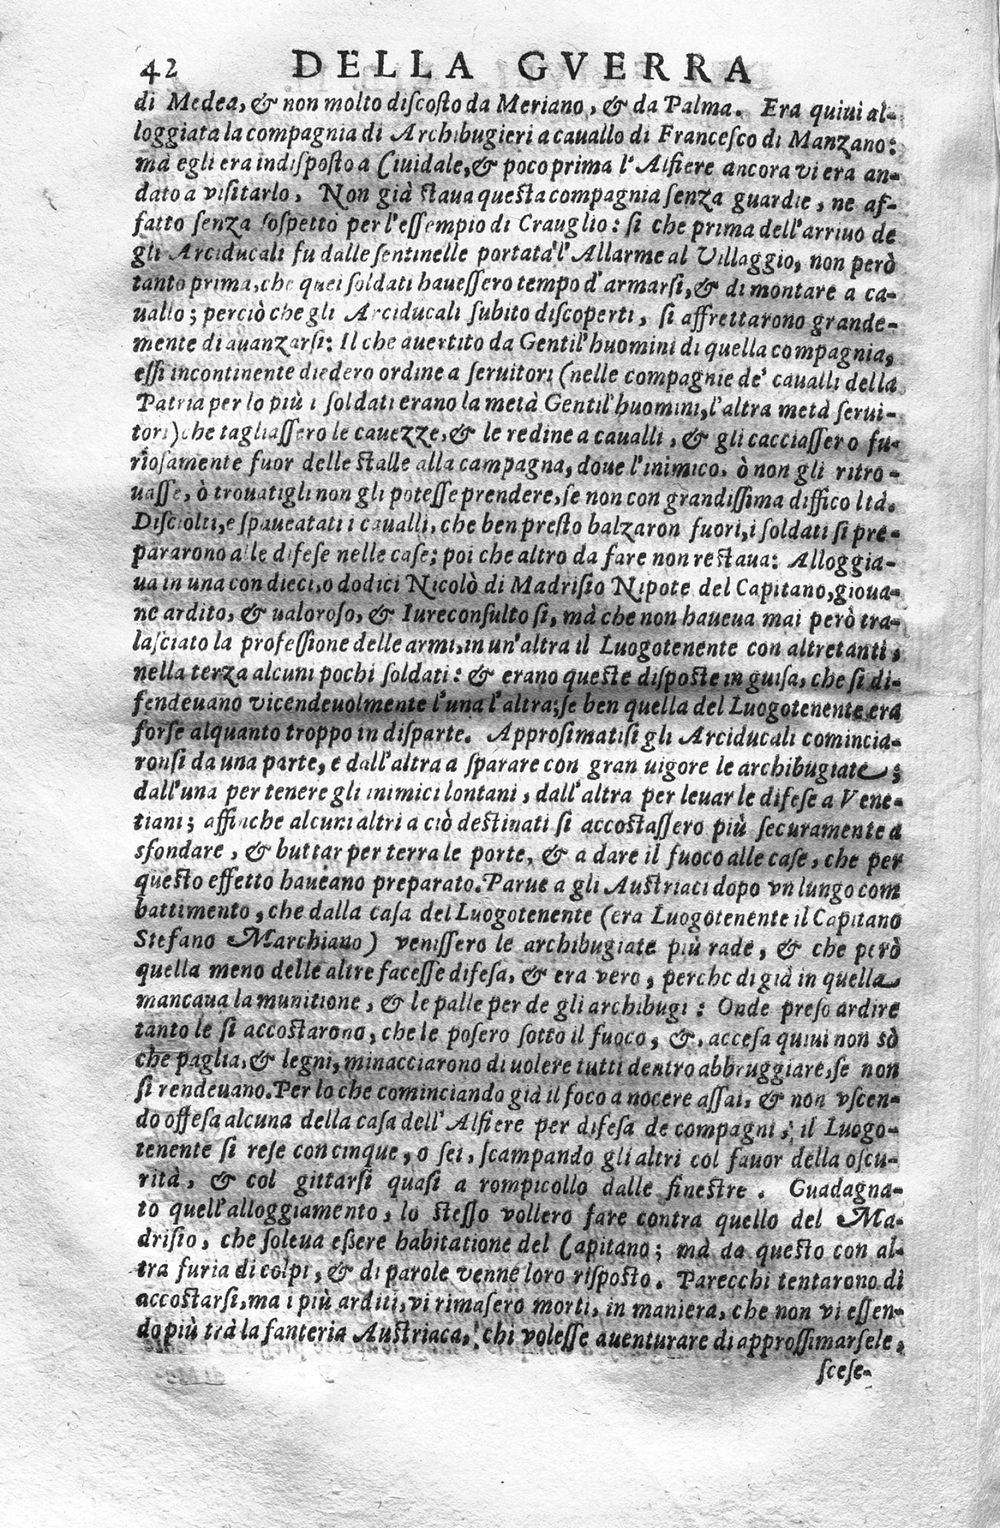 42 DELLA GVERRA
di Medea, & non molto discosto da Meriano, & da Palma. Era quini al-
loggiata la compagnia di Archibugieri a cauallo di Francesco di Manzano:
mà egli era indisposto a Ciuidale, & poco prima l'Alfiere ancora vi era an-
dato a visitarlo, Non già staua questa compagnia senza guardie, ne af-
fatto senza sospetto per l'essempio di Crauglio: si che prima dell'arriuo de
gli Arciducali fu dalle sentinelle portata l'Allarme al Villaggio, non però
tanto prima, che quei soldati hauessero tempo d'armarsi, & di montare a ca-
uallo; perciò che gli Arciducali subito discoperti, si affrettarono grande-
mente di auanzarsi: Il che auertito da Gentil'huomini di quella compagnia,
essi incontinente diedero ordine a seruitori (nelle compagnie de' caualli della
Patria per lo più i soldati erano la metà Gentil'huomini, l'altra metà serui-
tori) che tagliassero le cauezze, & le redine a caualli, & gli cacciassero fu-
riosamente fuor delle stalle alla campagna, doue l'inimico, ò non gli ritro-
uasse, ò trouatigli non gli potesse prendere, se non con grandissima difficoltà.
Disciolti, e spaueatati i caualli, che ben presto balzaron fuori, i soldati si pre-
pararono alle difese nelle case; poi che altro da fare non restaua: Alloggia-
ua in una con dieci, o dodici Nicolò di Madrisio Nipote del Capitano, gioua-
ne ardito, & ualoroso, & Iureconsulto si, mà che non haueua mai però tra-
lasciato la professione delle armi, in un'altra il Luogotenente con altretanti,
nella terza alcuni pochi soldati: & erano queste disposte in guisa, che si di-
fendeuano vicendeuolmente l'una l'altra; se ben quella del Luogotenente era
forse alquanto troppo in disparte. Approsimatisi gli Arciducali comincia-
ronsi da una parte, e dall'altra a sparare con gran uigore le archibugiate;
dall'una per tenere gli inimici lontani, dall'altra per leuar le difese a Vene-
tiani; affinche alcuni altri a ciò destinati si accostassero più securamente a
sfondare, & buttar per terra le porte, & a dare il fuoco alle case, che per
questo effetto haueano preparato. Parue a gli Austriaci dopo vn lungo com
battimento, che dalla casa del Luogotenente (era Luogotenente il Capitano
Stefano Marchiano) venissero le archibugiate più rade, & che però
quella meno delle altre facesse difesa, & era vero, perche di già in quella
mancaua la munitione, & le palle per de gli archibugi: Onde preso ardire
tanto le si accostarono, che le posero sotto il fuoco, &, accesa quiui non sò
che paglia, & legni, minacciarono di uolere tutti dentro abbruggiare, se non
si rendeuano. Per lo che cominciando già il foco a nocere assai, & non vscen-
do offesa alcuna della casa dell'Alfiere per difesa de compagni, il Luogo-
tenente si rese con cinque, o sei, scampando gli altri col fauor della oscu-
rità, & col gittarsi quasi a rompicollo dalle finestre. Guadagna-
to quell'alloggiamento, lo stesso vollero fare contra quello del Ma-
drisio, che soleua eßere habitatione del Capitano; mà da questo con al-
tra furia di colpi, & di parole venne loro risposto. Parecchi tentarono di
accostarsi, ma i più arditi, vi rimasero morti, in maniera, che non vi essen-
do più trà la fanteria Austriaca, chi volesse auenturare di approssimarsele,
scese-